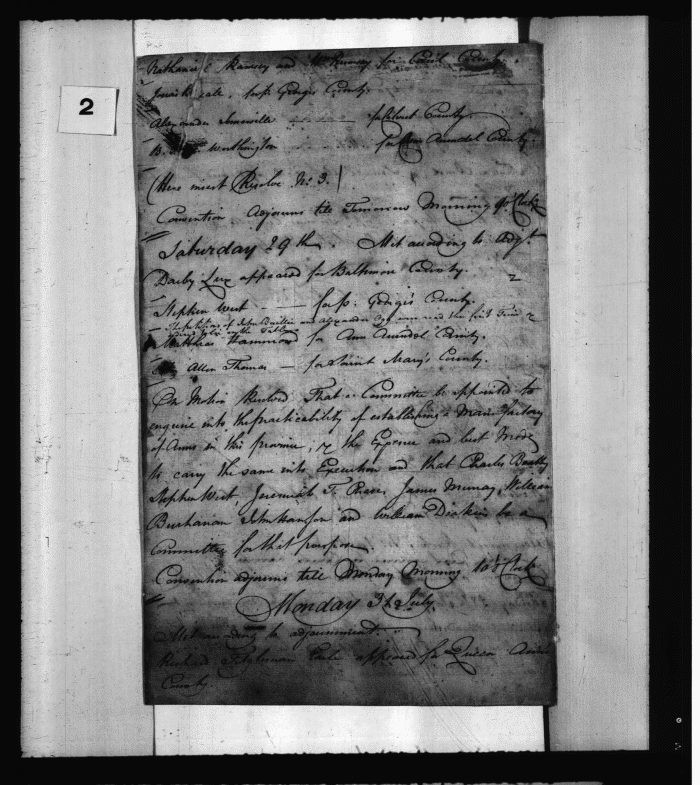 2
Nathaniel Ramsey and Wm Rumsey for Cecil County.
Josias Beall, for P. Georges County.
Alexander Somerville - - - for Calvert County.
B. Worthington - - - for Ann Arundel County.
(Here insert Resolve No. 3.)
Convention Adjourns till Tomorrow Morning 9 o'Clock
Saturday 29th. Met according to Adjt.
Darby Lux appeared for Baltimore County.
Stephen West - - for P. Georges County.
The petition of John and Alexander read the first Time
on the Table
Matthias Hammond for Ann Arundel County.
Allen Thomas — for Saint Mary's County.
On Motion Resolved That a Committee be appointed to
enquire into the practicability of establishing a Manufactory
of Arms in this province, & the Expence and best Mode
to carry the same into Execution and that Charles Beatty
Stephen West, Jeremiah T. Chase, James Murray, William
Buchanan John Hanson and William Deakins be a
Committee for that purpose
Convention adjourns till Monday Morning 10 o'Clock
Monday 31st July.
Met according to adjournment.
Richard Tilghman Earle appeared for Queen Anns
County